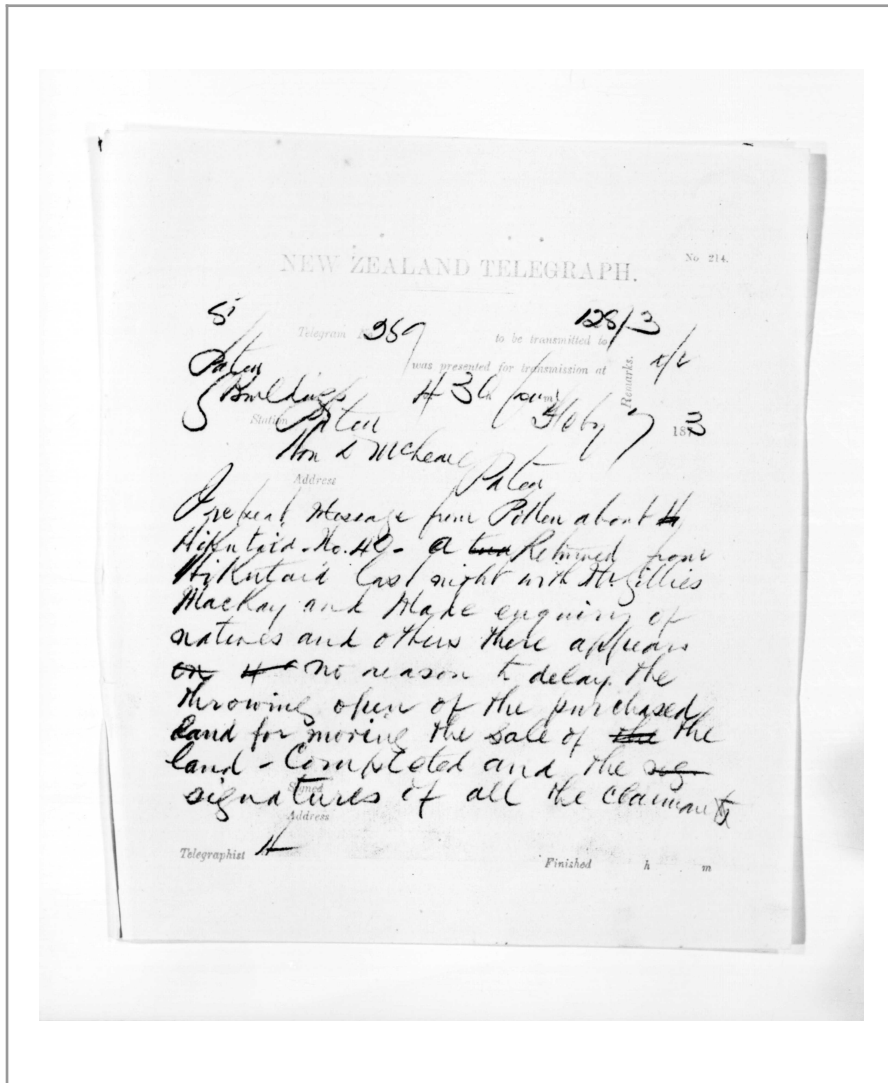 NEW ZEALAND TELEGRAPH.
No 214.
128/3
Telegram 359 to be transmitted to
Remarks.
Patea was presented for transmission at
Buildings 4 30
Station Patea Feby 7 1873
Hon D McLean
Address Patea
I repeat Message from Pollen about H
Hikutaia - No. 49 - a Returned from
Hikutaia last night with Gillies
Mackay and Made enquiry of
natives and others there appears
on H no reason to delay the
throwing open of the purchased
land for mining the sale of the the
land - Completed and the sig
signatures of all the claimants
Signed
Address
Telegraphist H
Finished h m